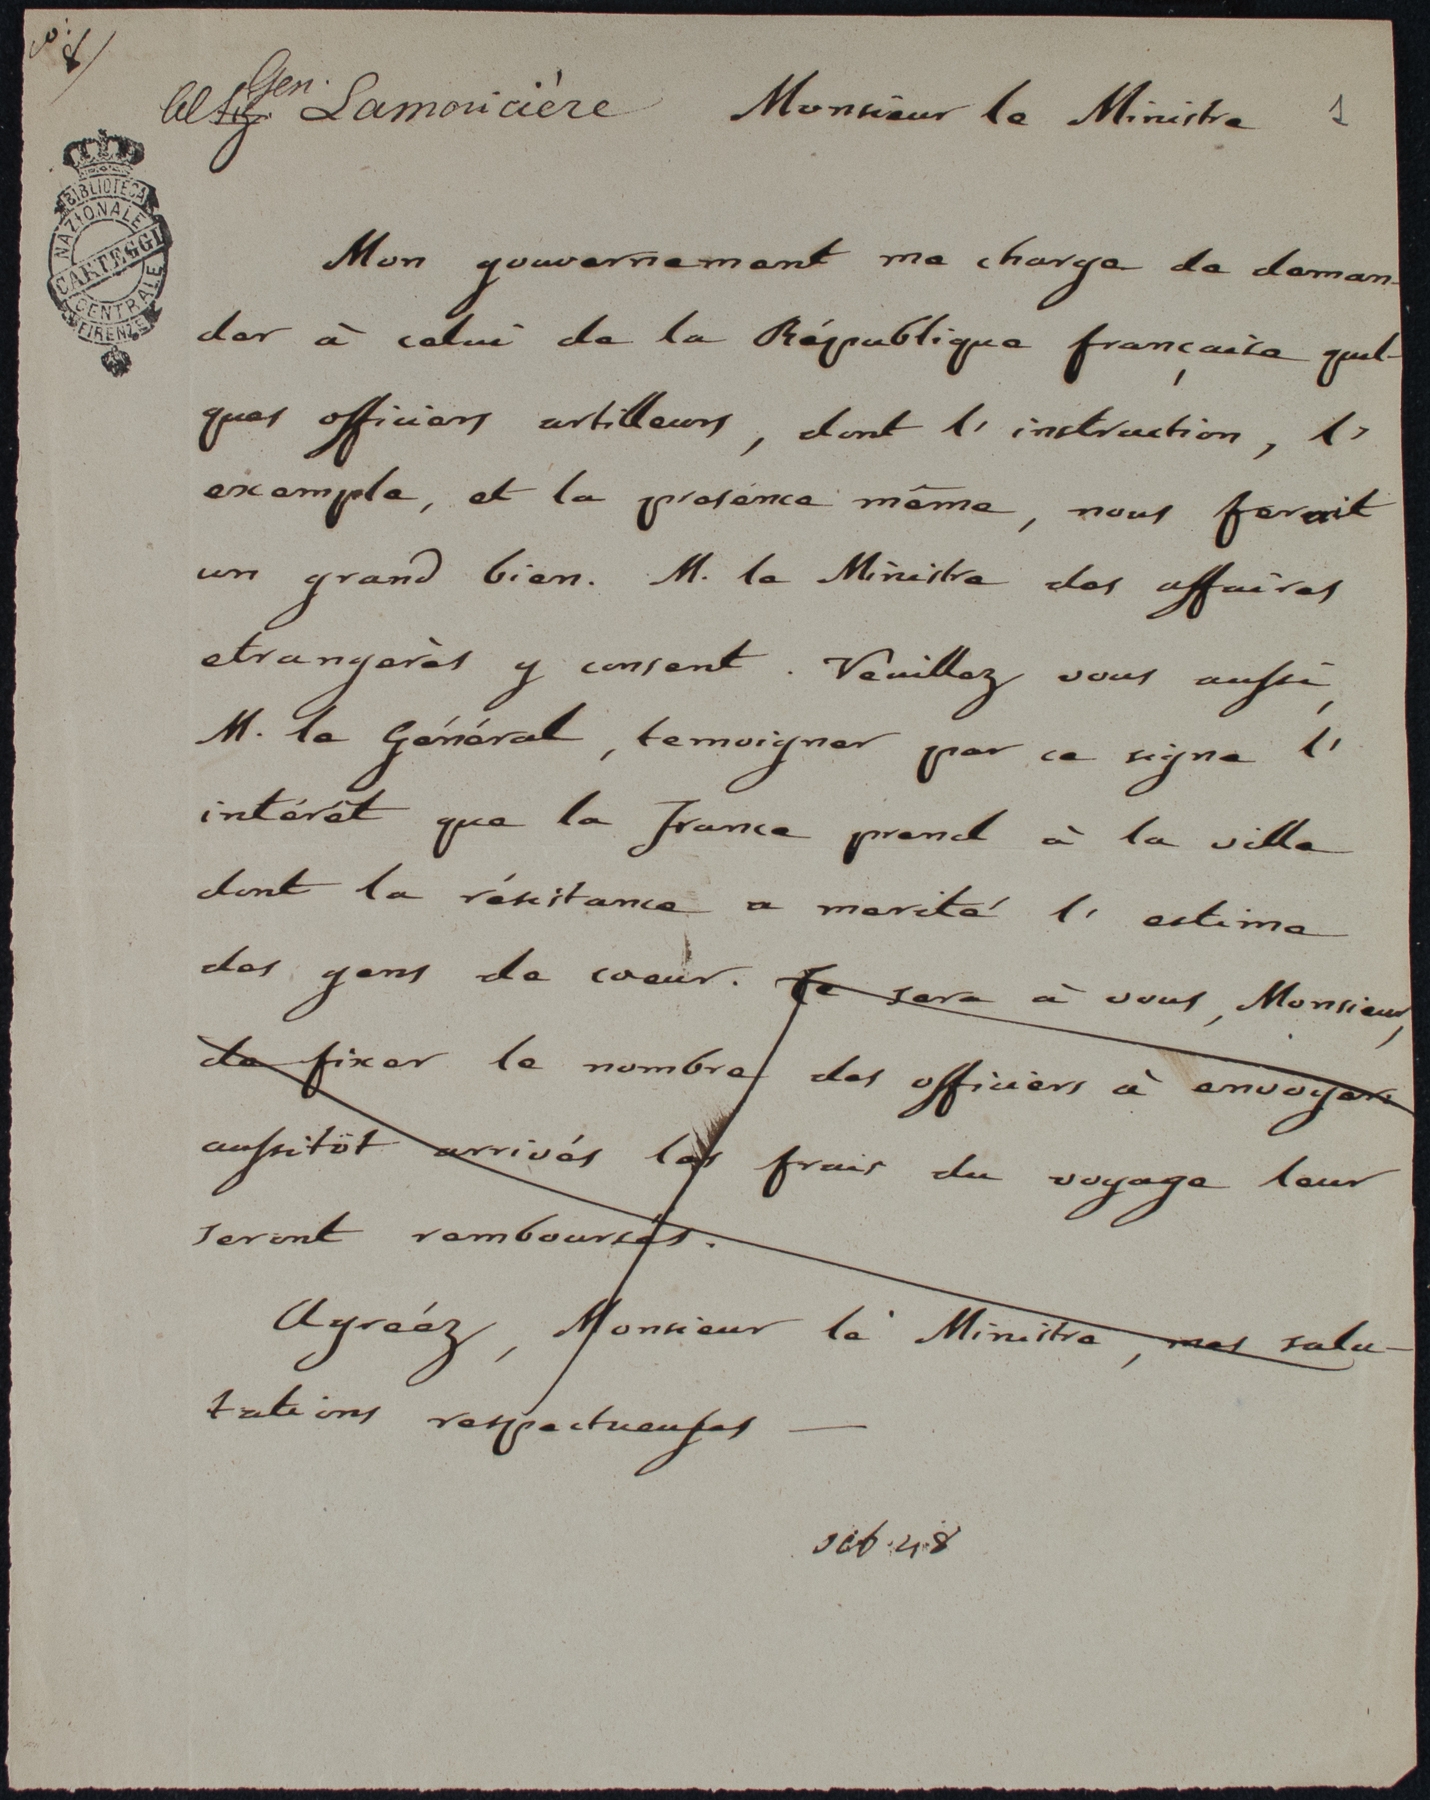 8
Al Sig. Gen. Lamoricière Monsieur le Ministre 1
BIBLIOTECA
NAZIONALE
CARTEGGI
CENTRALE
FIRENZE
Mon gouvernement me charge de deman-
der à celui de la République française quel-
ques officiers artilleurs, dont l' instruction, l'
exemple, et la présence même, nous ferait
un grand bien. M. le Ministre des affaires
etrangerès y consent. Veuillez vous aussi,
M. le Général, temoigner par ce signe l'
intérêt que la France prend à la ville
dont la résistance a merité l' estime
des gens de coeur. Ce sera à vous, Monsieur,
de fixer le nombre des officiers à envoyer:
aussitôt arrivés les frais du voyage leur
seront remboursés.
Agréez, Monsieur le Ministre, mes salu-
tations respectueuses —
48